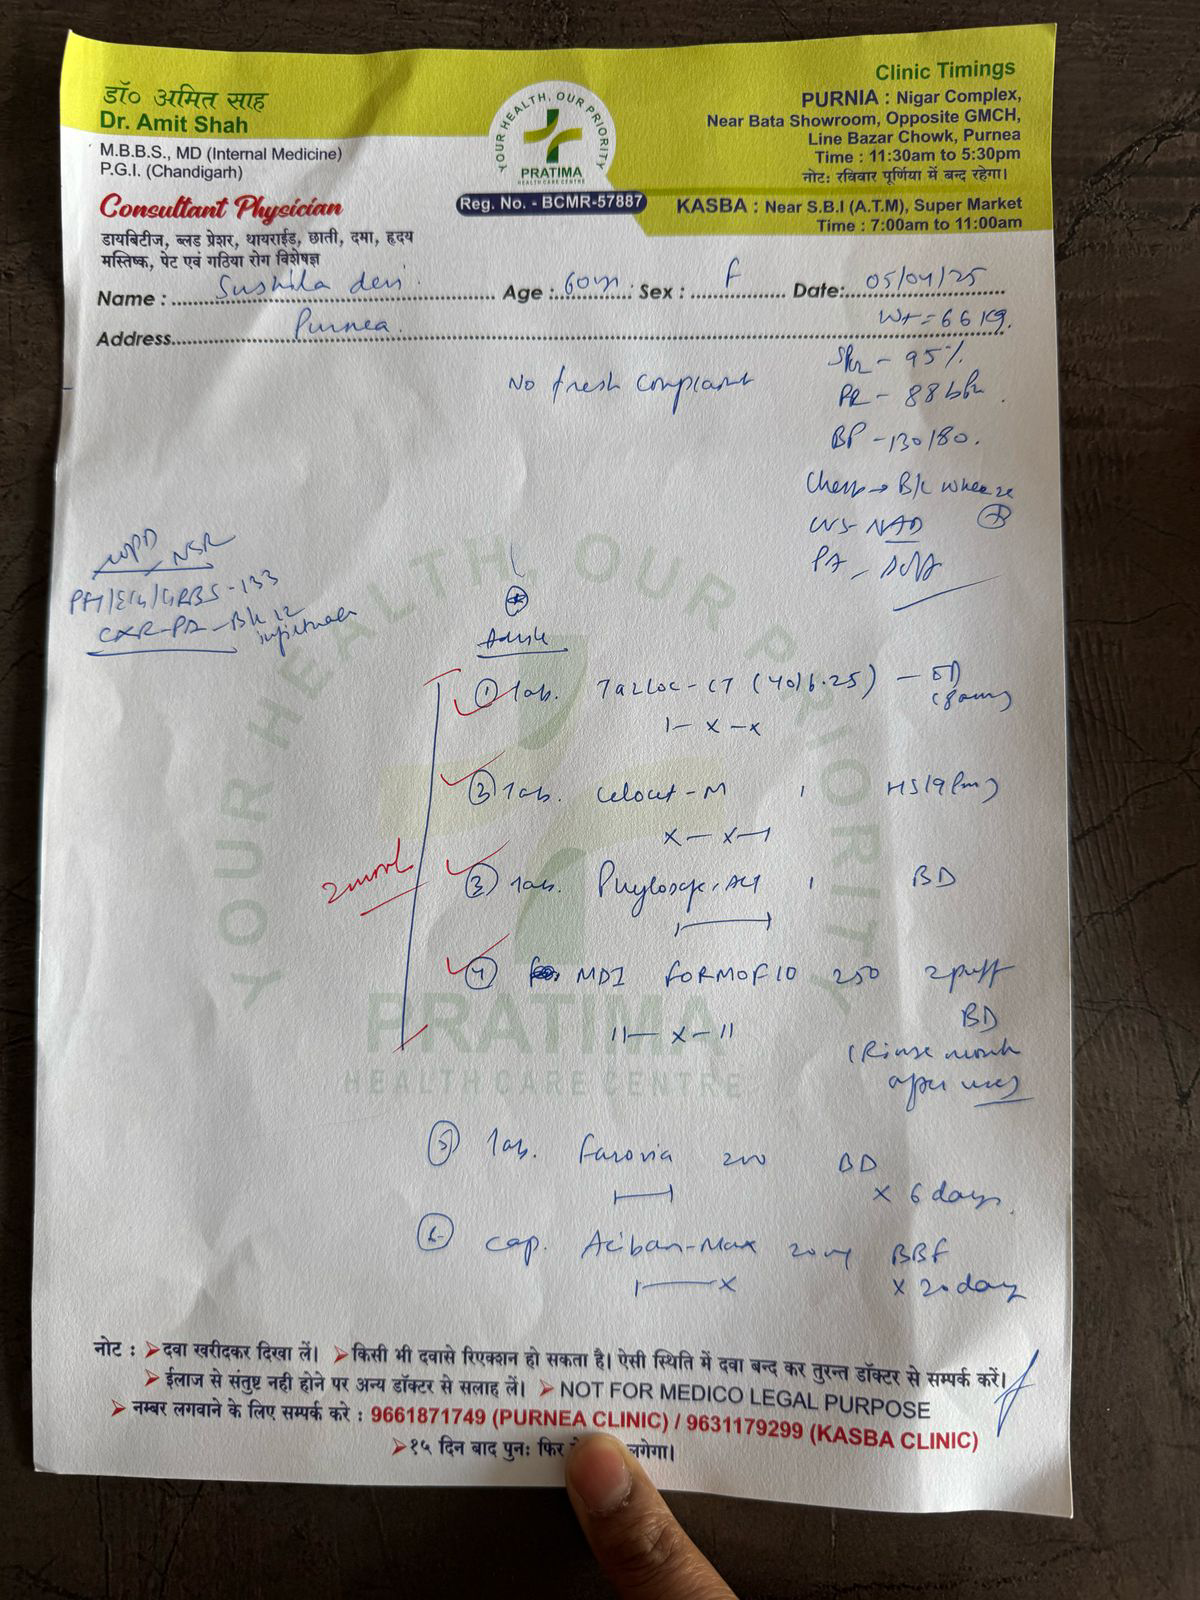 डॉ० अमित साह
Dr. Amit Shah
M.B.B.S., MD (Internal Medicine)
P.G.I. (Chandigarh)
Consultant Physician
डायबिटीज, ब्लड प्रेशर, थायराईड, छाती, दमा, हृदय
मस्तिष्क, पेट एवं गठिया रोग विशेषज्ञ
YOUR HEALTH, OUR PRIORITY
PRATIMA
HEALTH CARE CENTRE
Reg. No. - BCMR-57887
Clinic Timings
PURNIA : Nigar Complex,
Near Bata Showroom, Opposite GMCH,
Line Bazar Chowk, Purnea
Time : 11:30am to 5:30pm
नोट: रविवार पूर्णिया में बन्द रहेगा।
KASBA : Near S.B.I (A.T.M), Super Market
Time : 7:00am to 11:00am
Name : Sushila devi Age : 60yr Sex : F Date: 05/04/25
Address Purnea
Wt = 66 kg.
No fresh complaint
SpO2 - 95%
PR - 88 bpm
BP - 130/80.
Chest → B/L wheeze
CVS - NAD
PA - Soft
NSR
GRBS - 133
CXR-PA - B/L
Advise
① Tab. Tazloc-CT (40/6.25) — OD
(8am)
1 — x — x
② Tab. M 1 HS (9pm)
x — x — 1
③ Tab. 1 BD
④ MDI FORMOFLO 250 2 puff
BD
11 — x — 11
(Rinse mouth
after use)
⑤ Tab. Faronia 200 BD
x 6 days
⑥ Cap. Aciban-Max 20mg BBF
x 20 days
YOUR HEALTH, OUR PRIORITY
PRATIMA
HEALTH CARE CENTRE
नोट : ➤दवा खरीदकर दिखा लें। ➤किसी भी दवासे रिएक्शन हो सकता है। ऐसी स्थिति में दवा बन्द कर तुरन्त डॉक्टर से सम्पर्क करें।
➤ईलाज से संतुष्ट नही होने पर अन्य डॉक्टर से सलाह लें। ➤NOT FOR MEDICO LEGAL PURPOSE
➤नम्बर लगवाने के लिए सम्पर्क करे : 9661871749 (PURNEA CLINIC) / 9631179299 (KASBA CLINIC)
➤१५ दिन बाद पुनः फिर लगेगा।